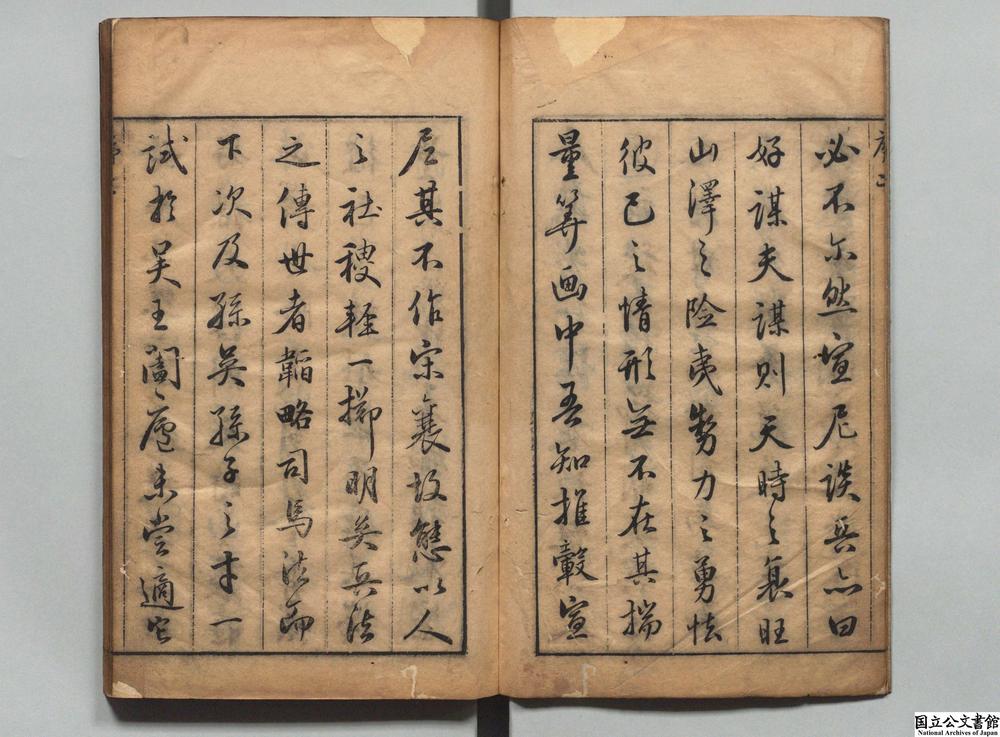 必不尔然宣尼談兵亦曰
好謀夫謀則天時之衰旺
山澤之險夷勢力之勇怯
彼己之情形無不在其揣
量筭画中吾知推轂宣
尼其不作宋襄故態以人
之社稷輕一擲明矣兵法
之傳世者韜略司馬法而
下次及孫吳孫子之才一
試於吳王闔廬未嘗適它
国立公文書館
National Archives of Japan